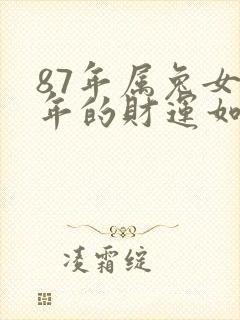 87年属兔女
年的财运如
凌霜绽